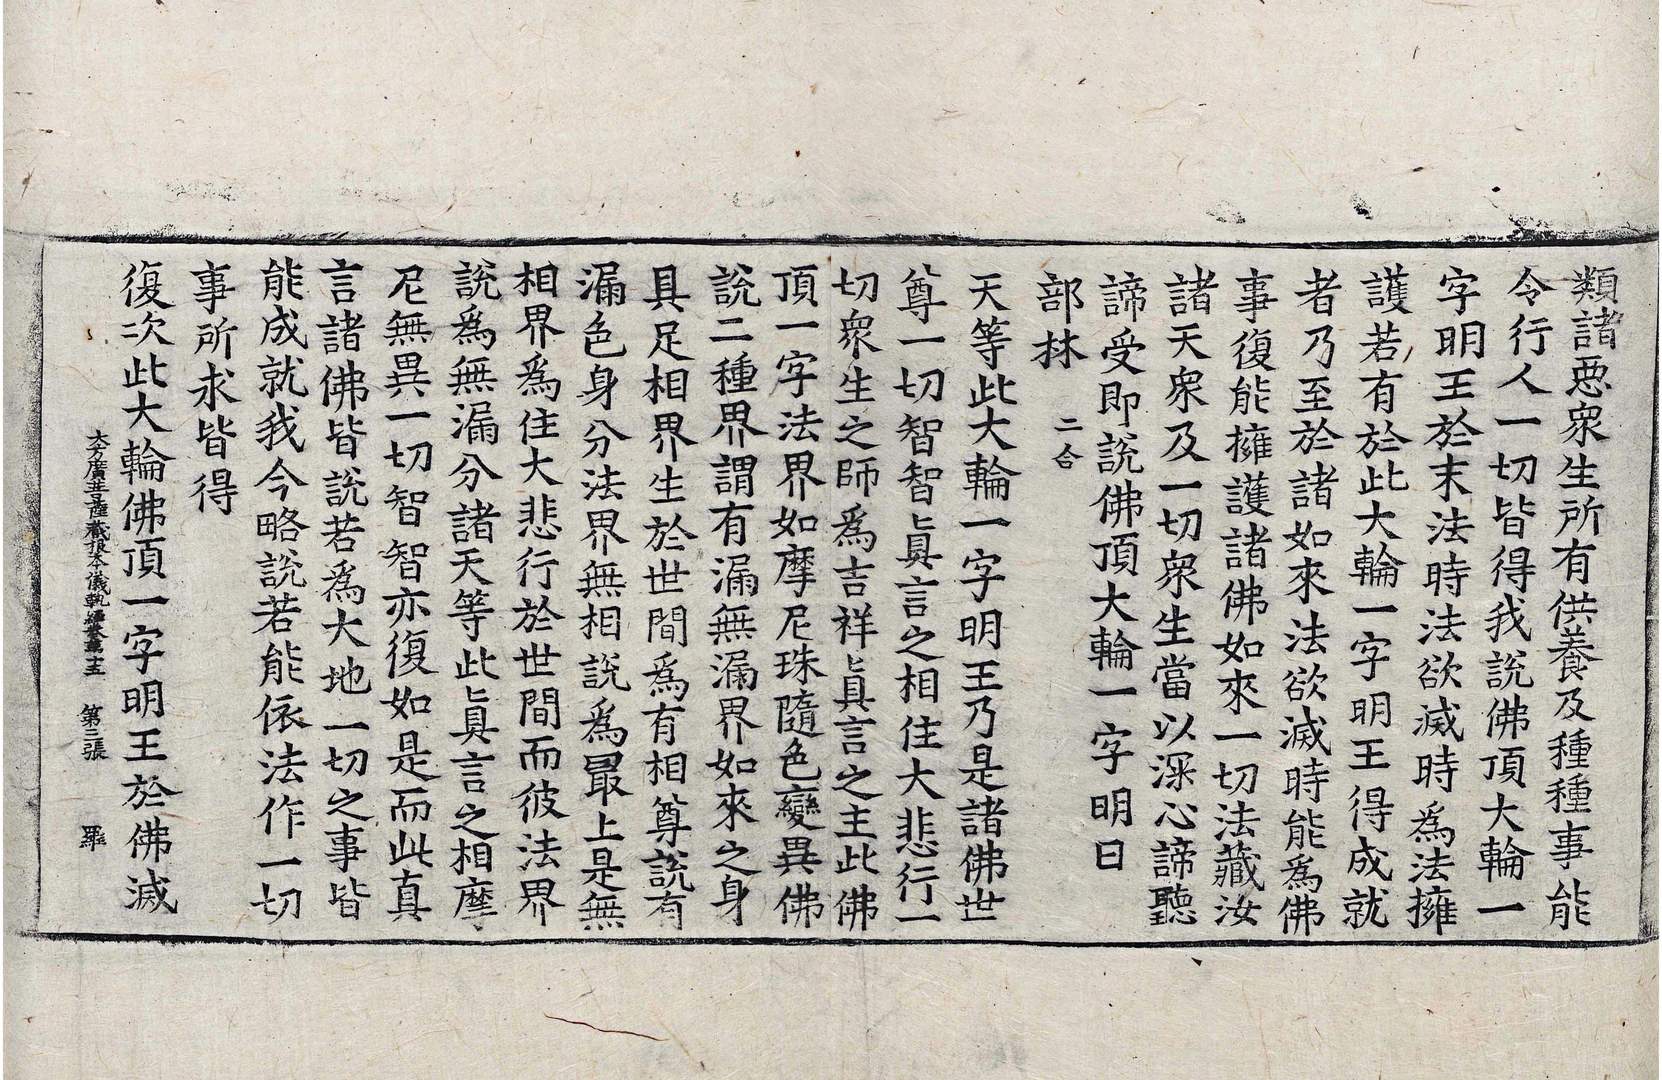 類諸惡衆生所有供養及種種事能
令行人一切皆得我說佛頂大輪一
字明王於末法時法欲滅時為法擁
護若有於此大輪一字明王得成就
者乃至於諸如來法欲滅時能為佛
事復能擁護諸佛如來一切法藏汝
諸天衆及一切衆生當以深心諦聽
諦受即說佛頂大輪一字明曰
部林 二合
天等此大輪一字明王乃是諸佛世
尊一切智智眞言之相住大悲行一
切衆生之師為吉祥眞言之主此佛
頂一字法界如摩尼珠隨色變異佛
說二種界謂有漏無漏界如來之身
具足相界生於世間為有相尊說有
漏色身分法界無相說為最上是無
相界為住大悲行於世間而彼法界
說為無漏分諸天等此眞言之相摩
尼無異一切智智亦復如是而此真
言諸佛皆說若為大地一切之事皆
能成就我今略說若能依法作一切
事所求皆得
復次此大輪佛頂一字明王於佛滅
大方廣菩薩藏根本儀軌經卷第十三 第三張 羅